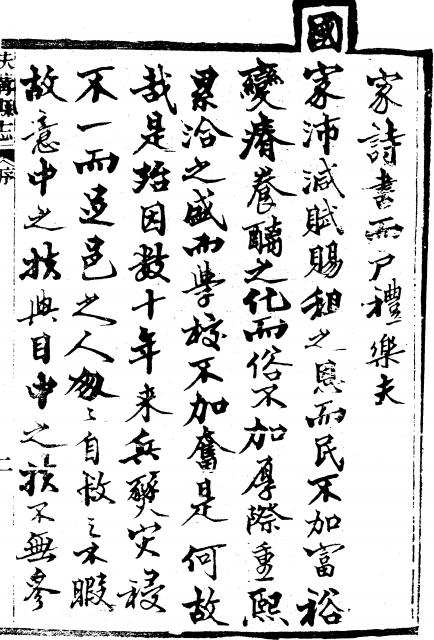 家詩書而戶禮樂夫
國家沛減賦賜租之恩而民不加富裕
變瘠養之化而俗不加厚際重熙
累洽之盛而學校不加奮是何故
哉是殆因數十年来兵燹灾祲
不一而足邑之人匆〻自救之不暇
故意中之扶與目中之扶不無參
扶溝縣志 序